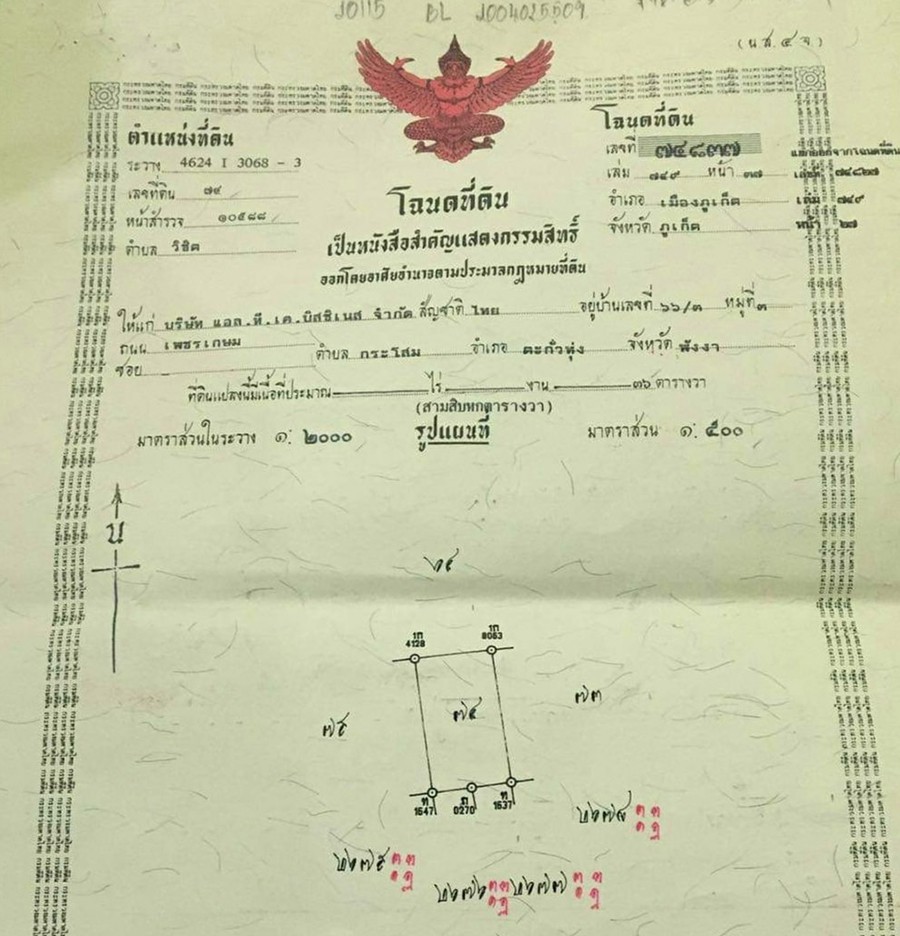 (น.ส. ๔ จ.)
ตำแหน่งที่ดิน
ระวาง 4624 I 3068 - 3
เลขที่ดิน
หน้าสำรวจ ๑๐๕๘๘
ตำบล วิชิต
โฉนดที่ดิน
เลขที่ ๗๔๘๓๗
เล่ม ๗๔๙ หน้า ๓๗
อำเภอ เมืองภูเก็ต
จังหวัด ภูเก็ต
๗๔๘๒๗
เล่ม ๗๔๙
หน้า ๒๗
โฉนดที่ดิน
เป็นหนังสือสำคัญแสดงกรรมสิทธิ์
ออกโดยอาศัยอำนาจตามประมวลกฎหมายที่ดิน
ให้แก่ บริษัท แอล.ที.เค.บิสซิเนส จำกัด สัญชาติ ไทย อยู่บ้านเลขที่ ๖๖/๓ หมู่ที่ ๓
ถนน เพชรเกษม ตำบล กระโสม อำเภอ ตะกั่วทุ่ง จังหวัด พังงา
ซอย
ที่ดินแปลงนี้มีเนื้อที่ประมาณ ไร่ งาน ๓๖ ตารางวา
(สามสิบหกตารางวา)
มาตราส่วนในระวาง ๑: ๒๐๐๐ รูปแผนที่ มาตราส่วน ๑: ๕๐๐
น
1ก 4128
1ก 8053
1547
0270
1537